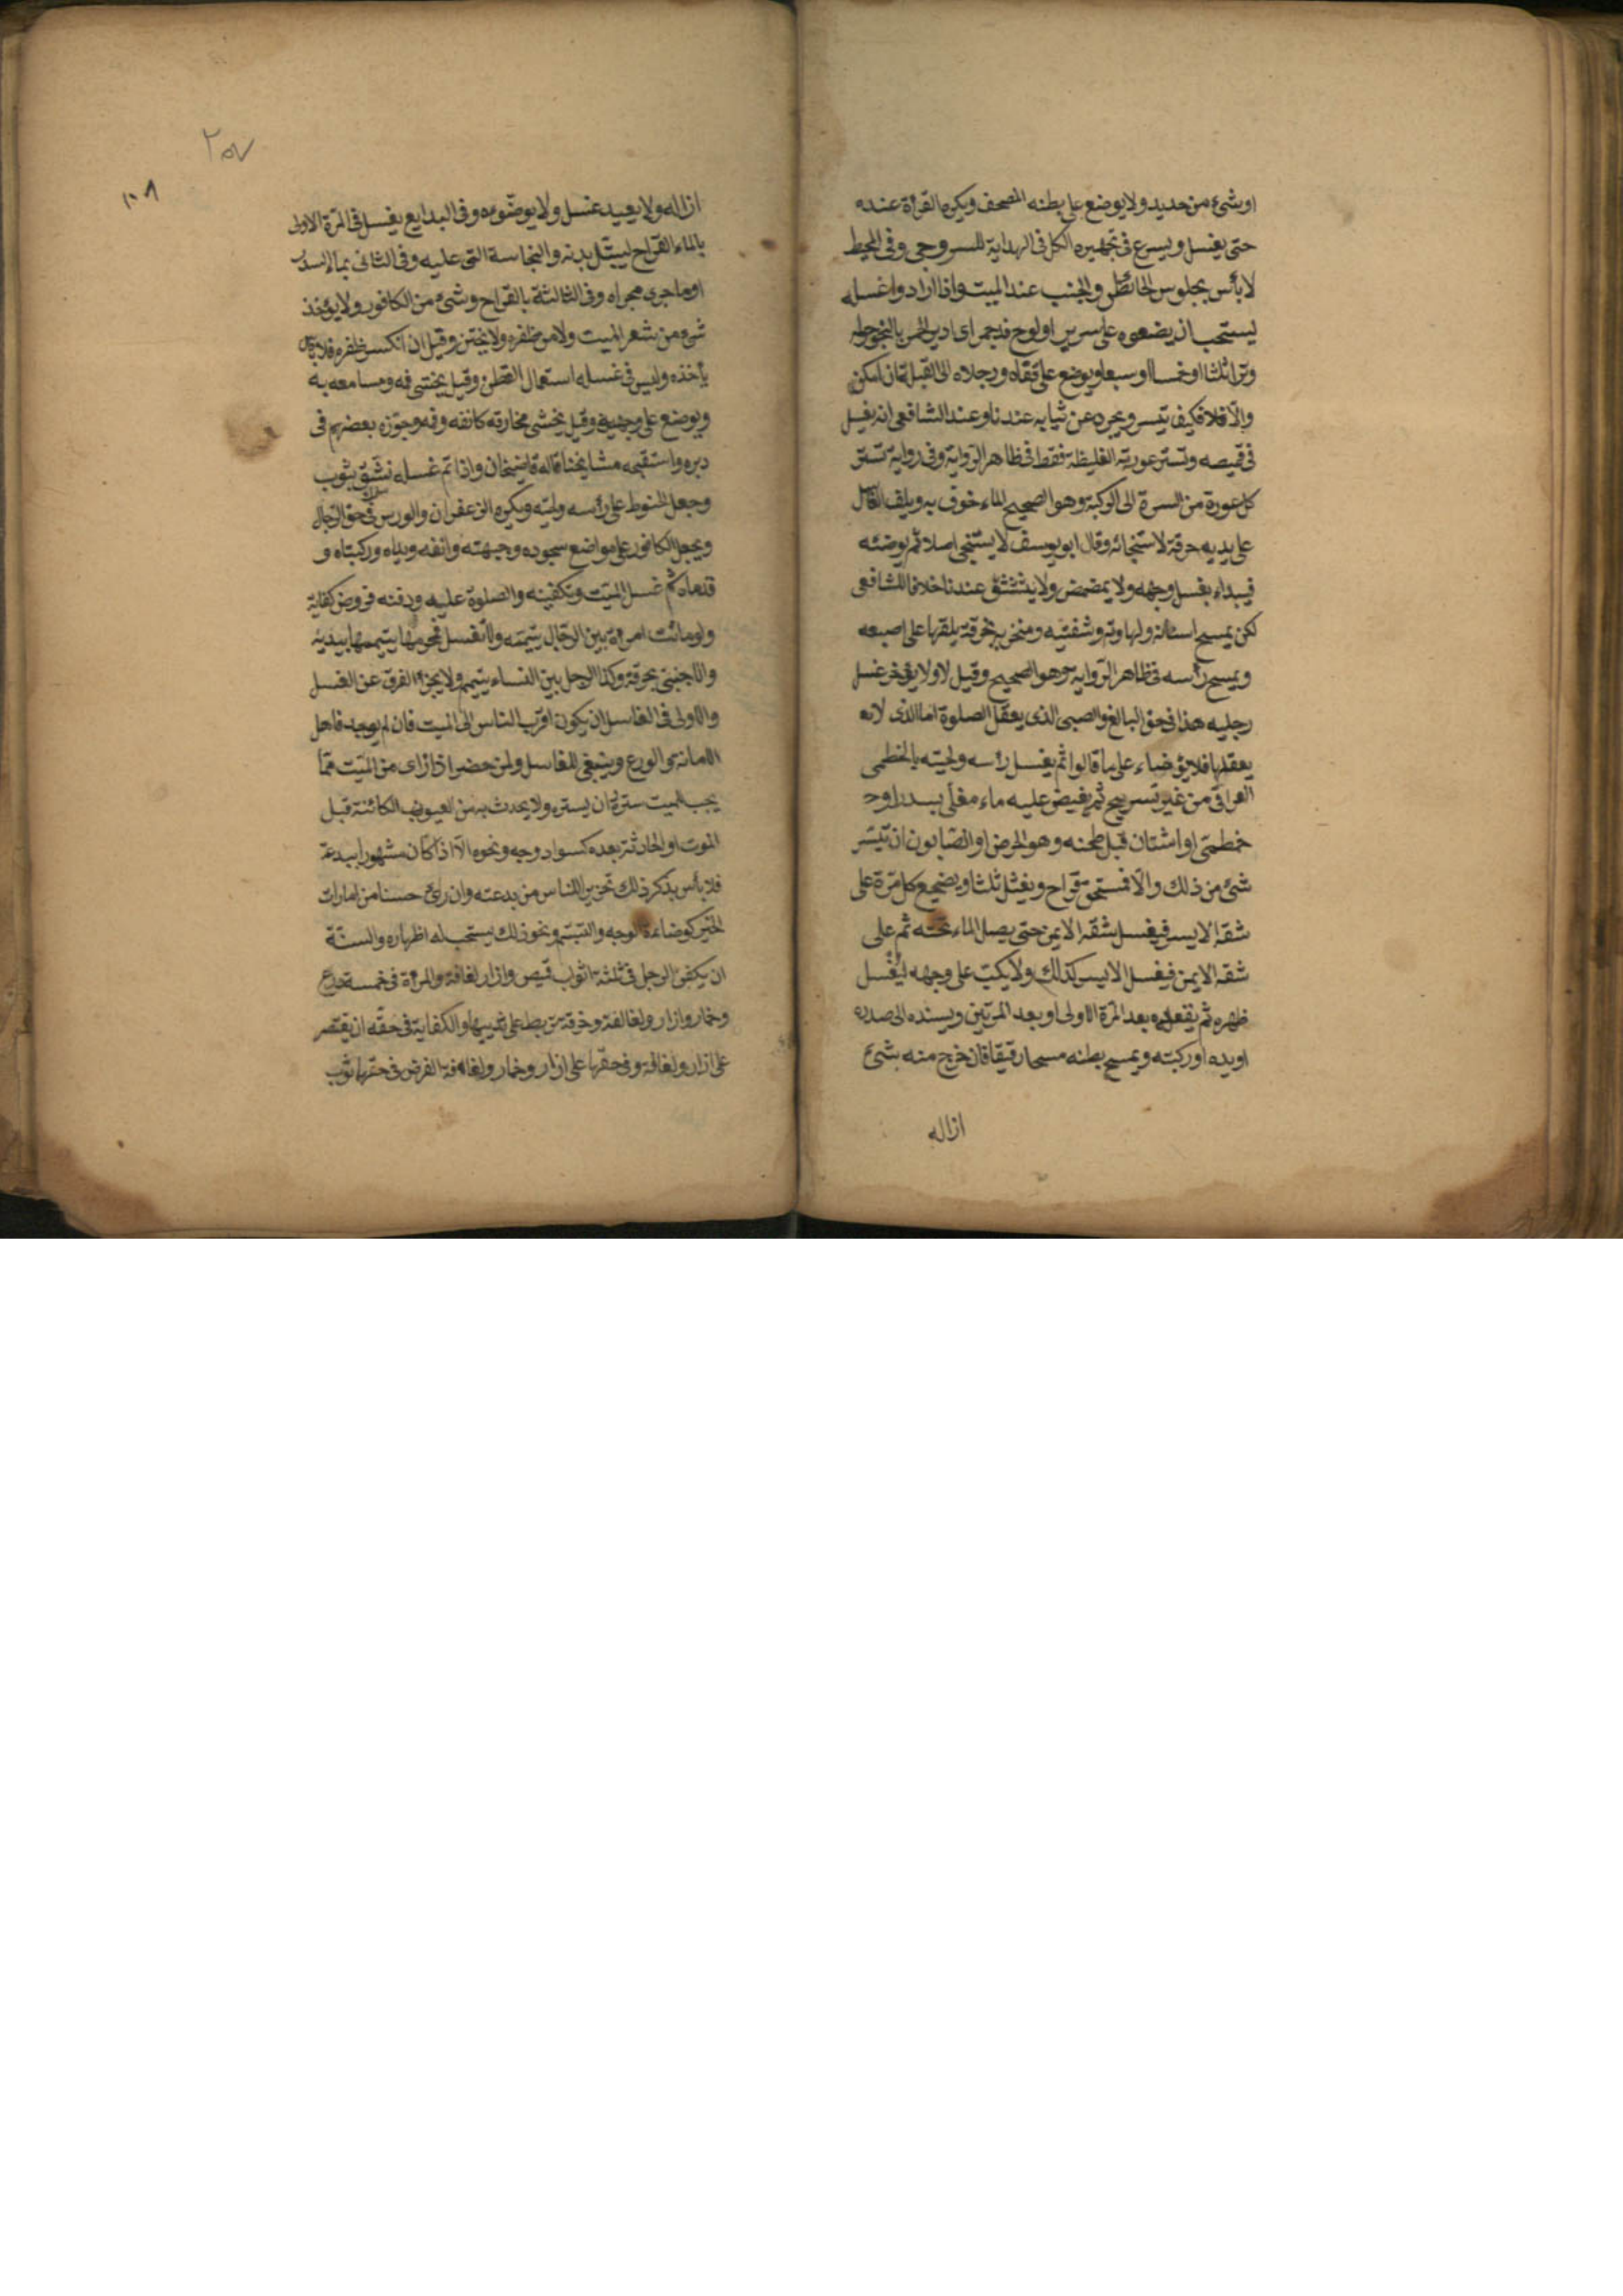 اوشئ من حديد ولا يوضع على بطنه المصحف ويكره القراءة عنده
حتى يغسل ويسرع فى تجهيزه الكل فى الهداية للسروجى وفى المحيط
لا بأس بجلوس الحائض والجنب عند الميت واذا ارادوا غسله
يستحب ان يضعوه على سرير او لوح قد جمر اى ادير الجمر بالبخور حوله
وترا ثلثا او خمسا او سبعا ويوضع على قفاه ورجلاه الى القبلة ان امكن
والّا فلا فكيف تيسر ويجرد عن ثيابه عندنا وعند الشافعى انه يغسل
فى قميصه وتستر عورته الغليظة فقط فى ظاهر الرواية وفى رواية تستر
كل عورة من السرة الى الركبة وهو الصحيح الماء خوف به ويلف الغاسل
على يديه خرقة لاستنجائه وقال ابو يوسف لا يستنجى اصلا ثم يوضئه
فيبداء بغسل وجهه ولا يمضمض ولا يستنشق عندنا خلافا للشافعى
لكن يمسح اسنانه ولهاوته وشفتيه ومنخريه بخرقة يلقها على اصبعه
ويمسح رأسه فى ظاهر الرواية وهو الصحيح وقيل لا ولا يؤخر غسل
رجليه هذا فى حق البالغ والصبى الذى يعقل الصلوة اما الذى لا
يعقلها فلا يؤضاء على ما قالوا ثم يغسل رأسه ولحيته بالخطمى
العراقى من غير تسريح ثم يفيض عليه ماء مغلّى بسدر او
خطمى او اشنان قبل طحنه وهو الحرض او الصابون ان تيسر
شئ من ذلك والّا فمستحق قراح ويغسل ثلثا ويضجع كل مرة على
شقه الايسر فيغسل شقه الايمن حتى يصل الماء تحته ثم على
شقه الايمن فيغسل الايسر كذلك ولا يكبّ على وجهه ليغسل
ظهره ثم يقعده بعد المرة الاولى او بعد المرتين ويسنده الى صدره
او يده او ركبته ويمسح بطنه مسحا رقيقا فان خرج منه شئ
ازاله
٢٥٧
١٠٨
ازاله ولا يعيد غسل ولا يوضوءه وفى البدايع يغسل فى المرة الاولى
بالماء القراح ليبتل بدنه والنجاسة التى عليه وفى الثانى بماء السدر
او ما جرى مجراه وفى الثالثة بالقراح وشئ من الكافور ولا يؤخذ
شئ من شعر الميت ولا من ظفره ولا يختن وقيل ان انكسر ظفره فلا بأس
يأخذه وليس فى غسله استعمال القطن وقيل يحشى فمه ومسامعه به
ويوضع على وجهه وقيل يحشى مخارقه كانفه وفمه وجوّزه بعضهم فى
دبره واستقبحه مشايخنا قاله قاضيخان واذا تم غسله نشّق بثوب
وجعل الحنوط على رأسه ولحيته ويكره الزعفران والورس فى حق الرجال
ويجعل الكافور على مواضع سجوده وجبهته وانفه ويداه وركبتاه و
قدماه ثم غسل الميت وتكفينه والصلوة عليه ودفنه فروض كفاية
ولو ماتت امرءة بين الرجال يتيمّمه ولا تغسل فمحرمها ييممها بيديه
والاجنبى بخرقة وكذا الرجل بين النساء يتيمم ولا يجزء الفرق عن الغسل
والاولى فى الغاسل ان يكون اقرب الناس الى الميت فان لم يوجد فاهل
الامانة والورع وينبغى للغاسل ولمن حضر اذا رأى من الميت مما
يجب الميت ستره ان يستره ولا يحدث به من العيوب الكائنة قبل
الموت او الحادثة بعده كسواد وجه ونحوه الّا اذا كان مشهورا ببدعة
فلا بأس بذكر ذلك تحذيرا للناس من بدعته وان رأى حسنا من امارات
الخير كوضاءة الوجه والتبسم ونحو ذلك يستحب له اظهاره والسنّة
ان يكفن الرجل فى ثلثة اثواب قميص وازار لفافة والمرءة فى خمسة درع
وخمار وازار ولفالفة وخرقة تربط على ثدييها والكفاية فى حقه ان يقتصر
على ازار ولفافة وفى حقها على ازار وخمار ولفافة الفرض فى حقها ثوب